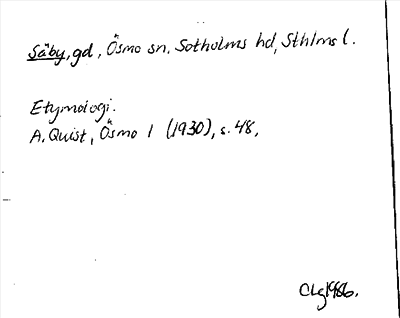 Säby, gd, Ösmo sn, Sotholms hd, Sthlms l.
Etymologi.
A. Quist, Ösmo 1 (1930), s. 48,
CLg 1986.